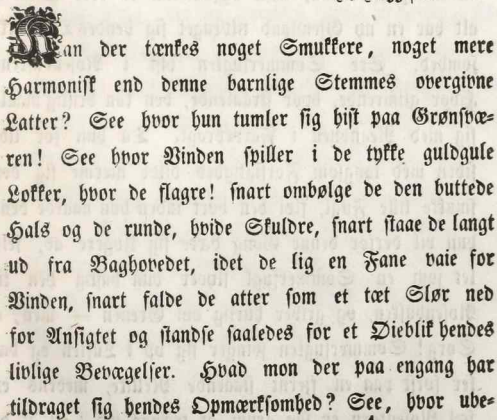 Kan der tænkes noget Smukkere, noget mere
Harmonisk end denne barnlige Stemmes overgivne
Latter? See hvor hun tumler sig hist paa Grønsvæ-
ren! See hvor Vinden spiller i de tykke guldgule
Lokker, hvor de flagre! snart ombølge de den buttede
Hals og de runde, hvide Skuldre, snart staae de langt
ud fra Baghovedet, idet de lig en Fane vaie for
Vinden, snart falde de atter som et tæt Slør ned
for Ansigtet og standse saaledes for et Øieblik hendes
livlige Bevægelser. Hvad mon der paa engang har
tildraget sig hendes Opmærksomhed? See, hvor ube-